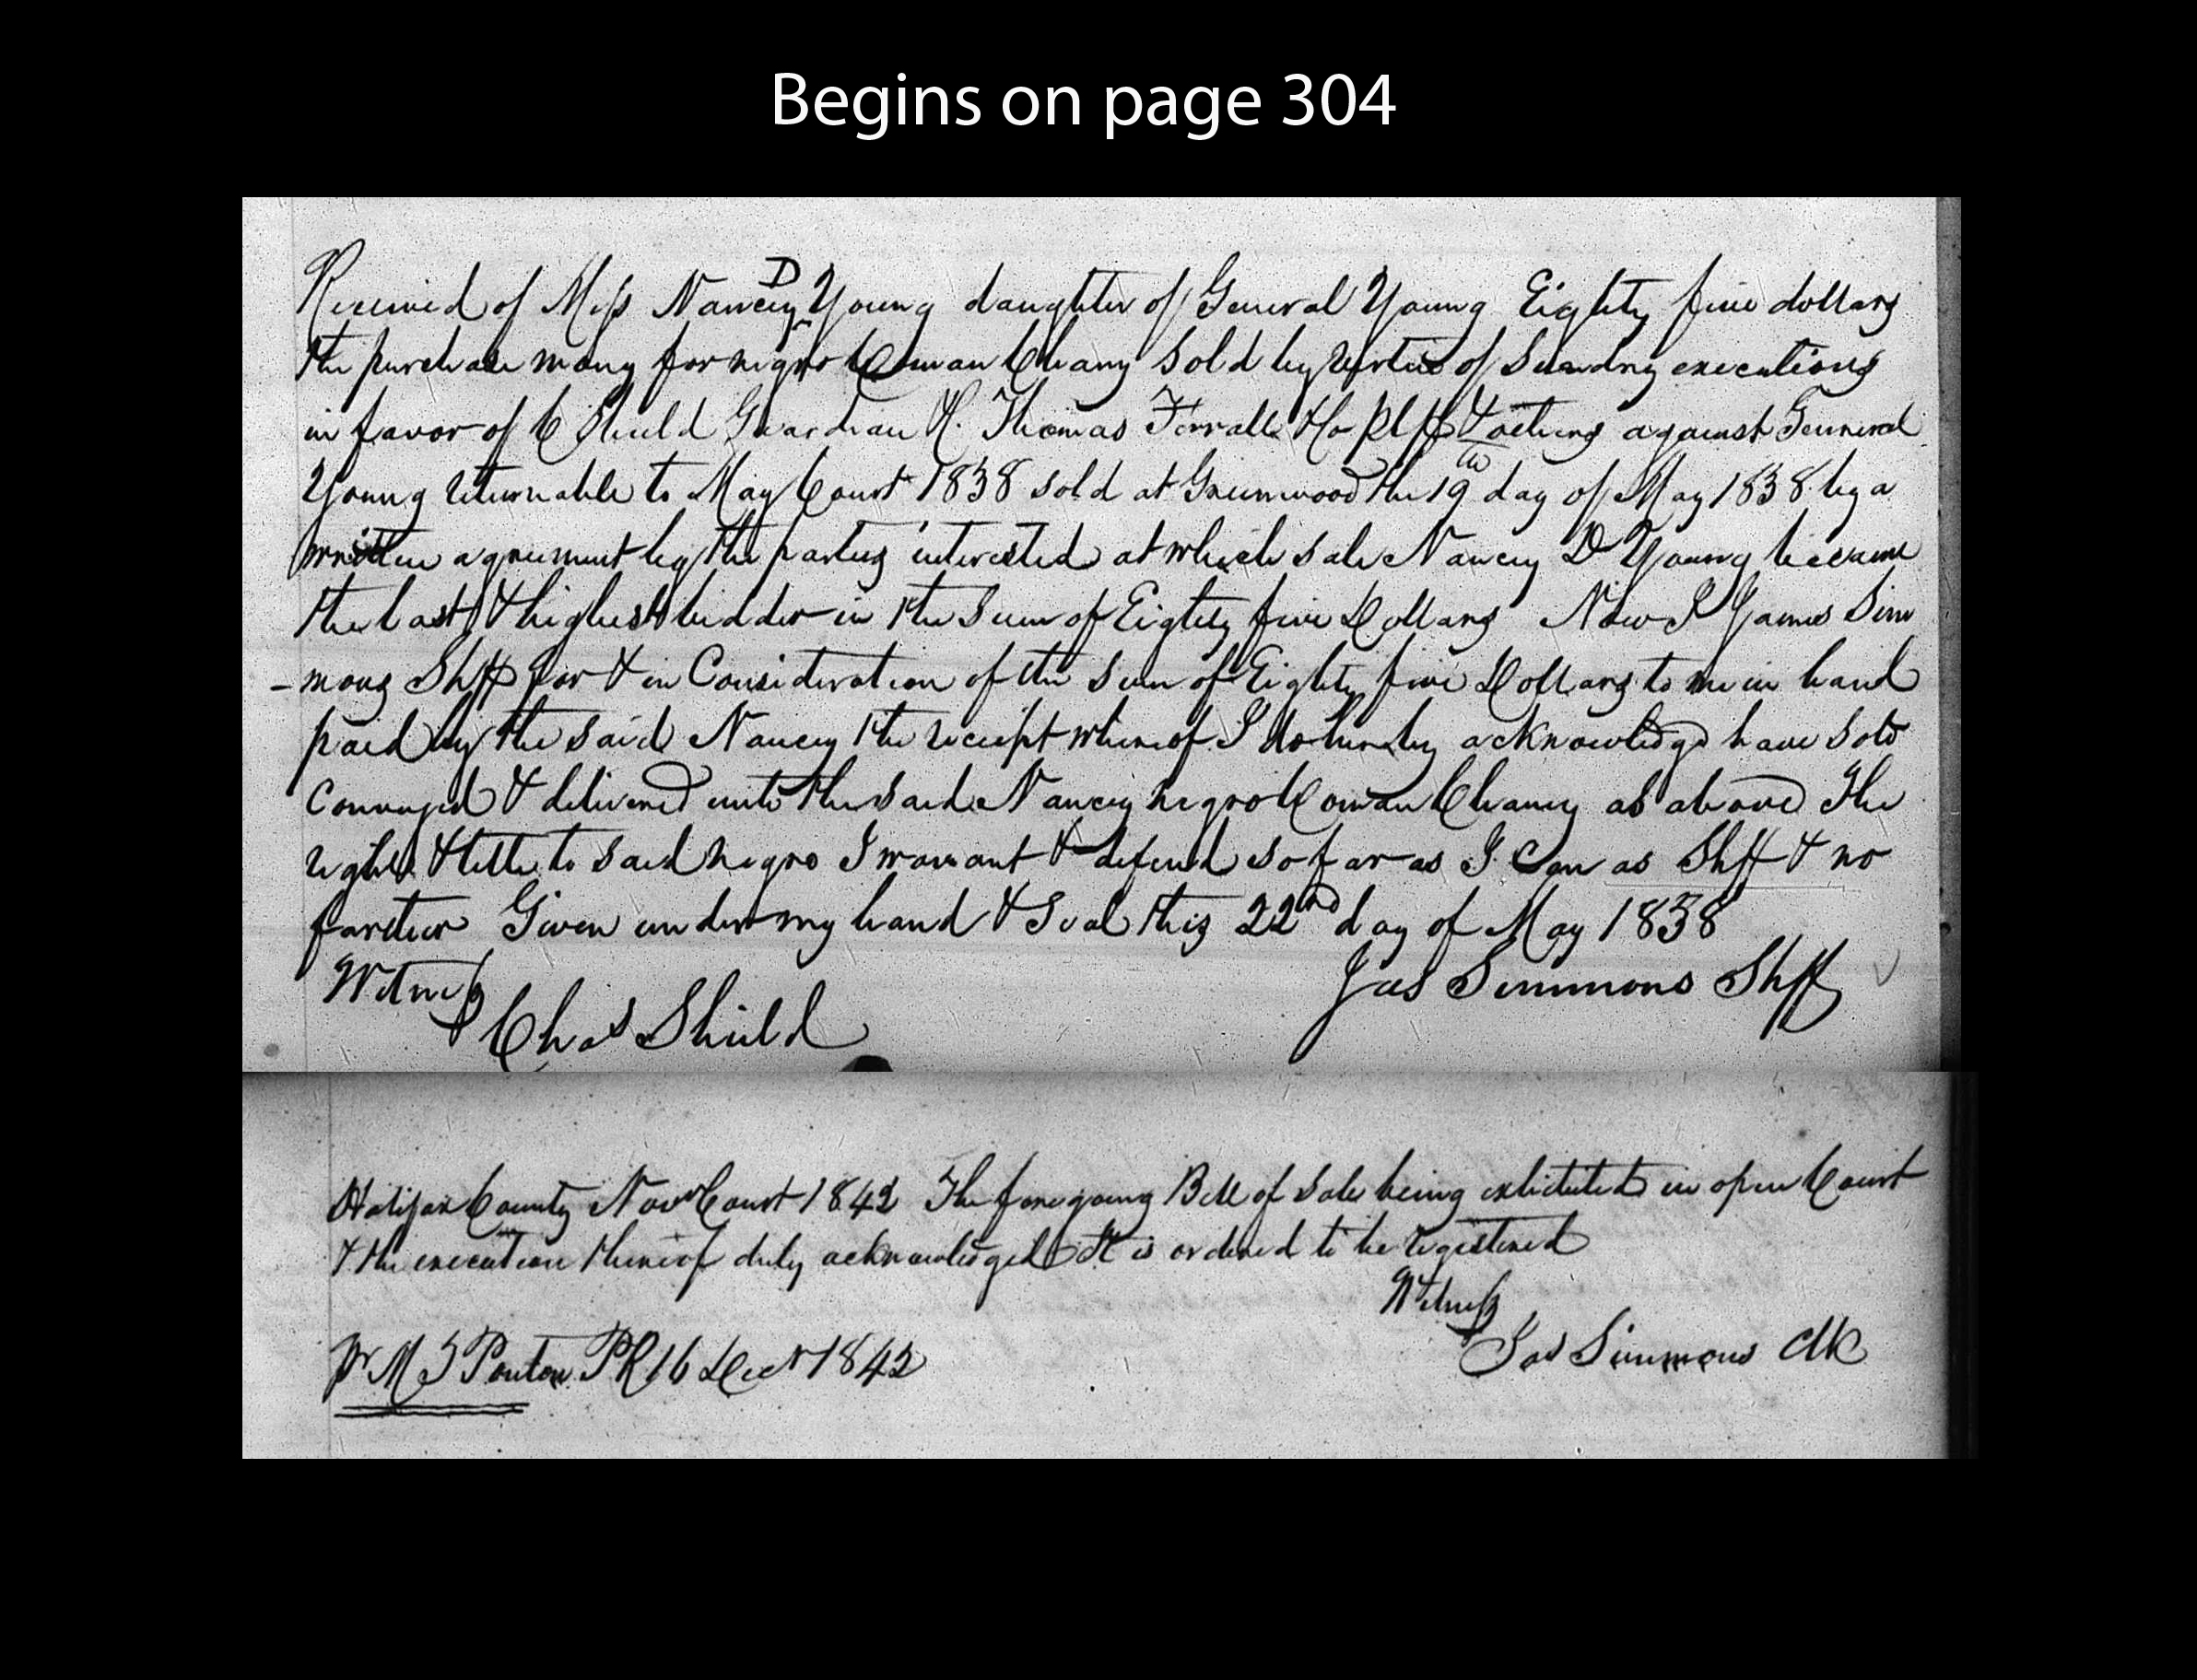 Begins on page 304
Received of Miss Nancy D Young daughter of General Young Eighty five dollars
the purchase mony for negro Woman Chany Sold by Virtue of Sundry executions
in favor of C Shield Guardian H. Thomas Ferrall & Co Plffs & others against General
Young returnable to May Court 1838 sold at Greenwood the 19th day of May 1838 by a
written agreement by the parties interested at which sale Nancy D Young became
the last & highest bidder in the Sum of Eighty five Dollars Now I James Sim
-mons Shff for & in Consideration of the Sum of Eighty five Dollars to me in hand
paid by the said Nancy the receipt whereof I do hereby acknowledge have Sold
Conveyed & delivered unto the said Nancy negro Woman Chaney as above The
right & title to said negro I warrant & defend so far as I Can as Shff & no
farther Given under my hand & Seal this 22nd day of May 1838
Witness Jas Simmons Shff
Chas Shield
Halifax County Novr Court 1842 The foregoing Bill of Sale being exhibited in open Court
& the execution thereof duly acknowledged It is ordered to be registered
Witness
Jas Simmons Clk
Pr M Ponton PR 16 Decr 1842